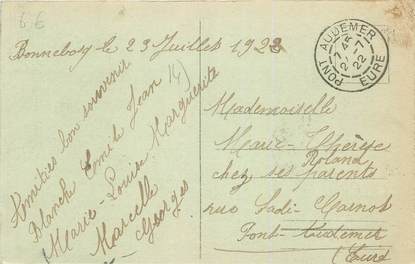 6€
Bonnebosq le 23 Juillet 1922
Amitiés bon souvenir
Blanche Emile Jean
Marie-Louise Marguerite
Marcelle
Georges
PONT AUDEMER
EURE
Mademoiselle
Marie-Thérèse
Roland
chez ses parents
rue Sadi-Carnot
Pont-Audemer
(Eure)